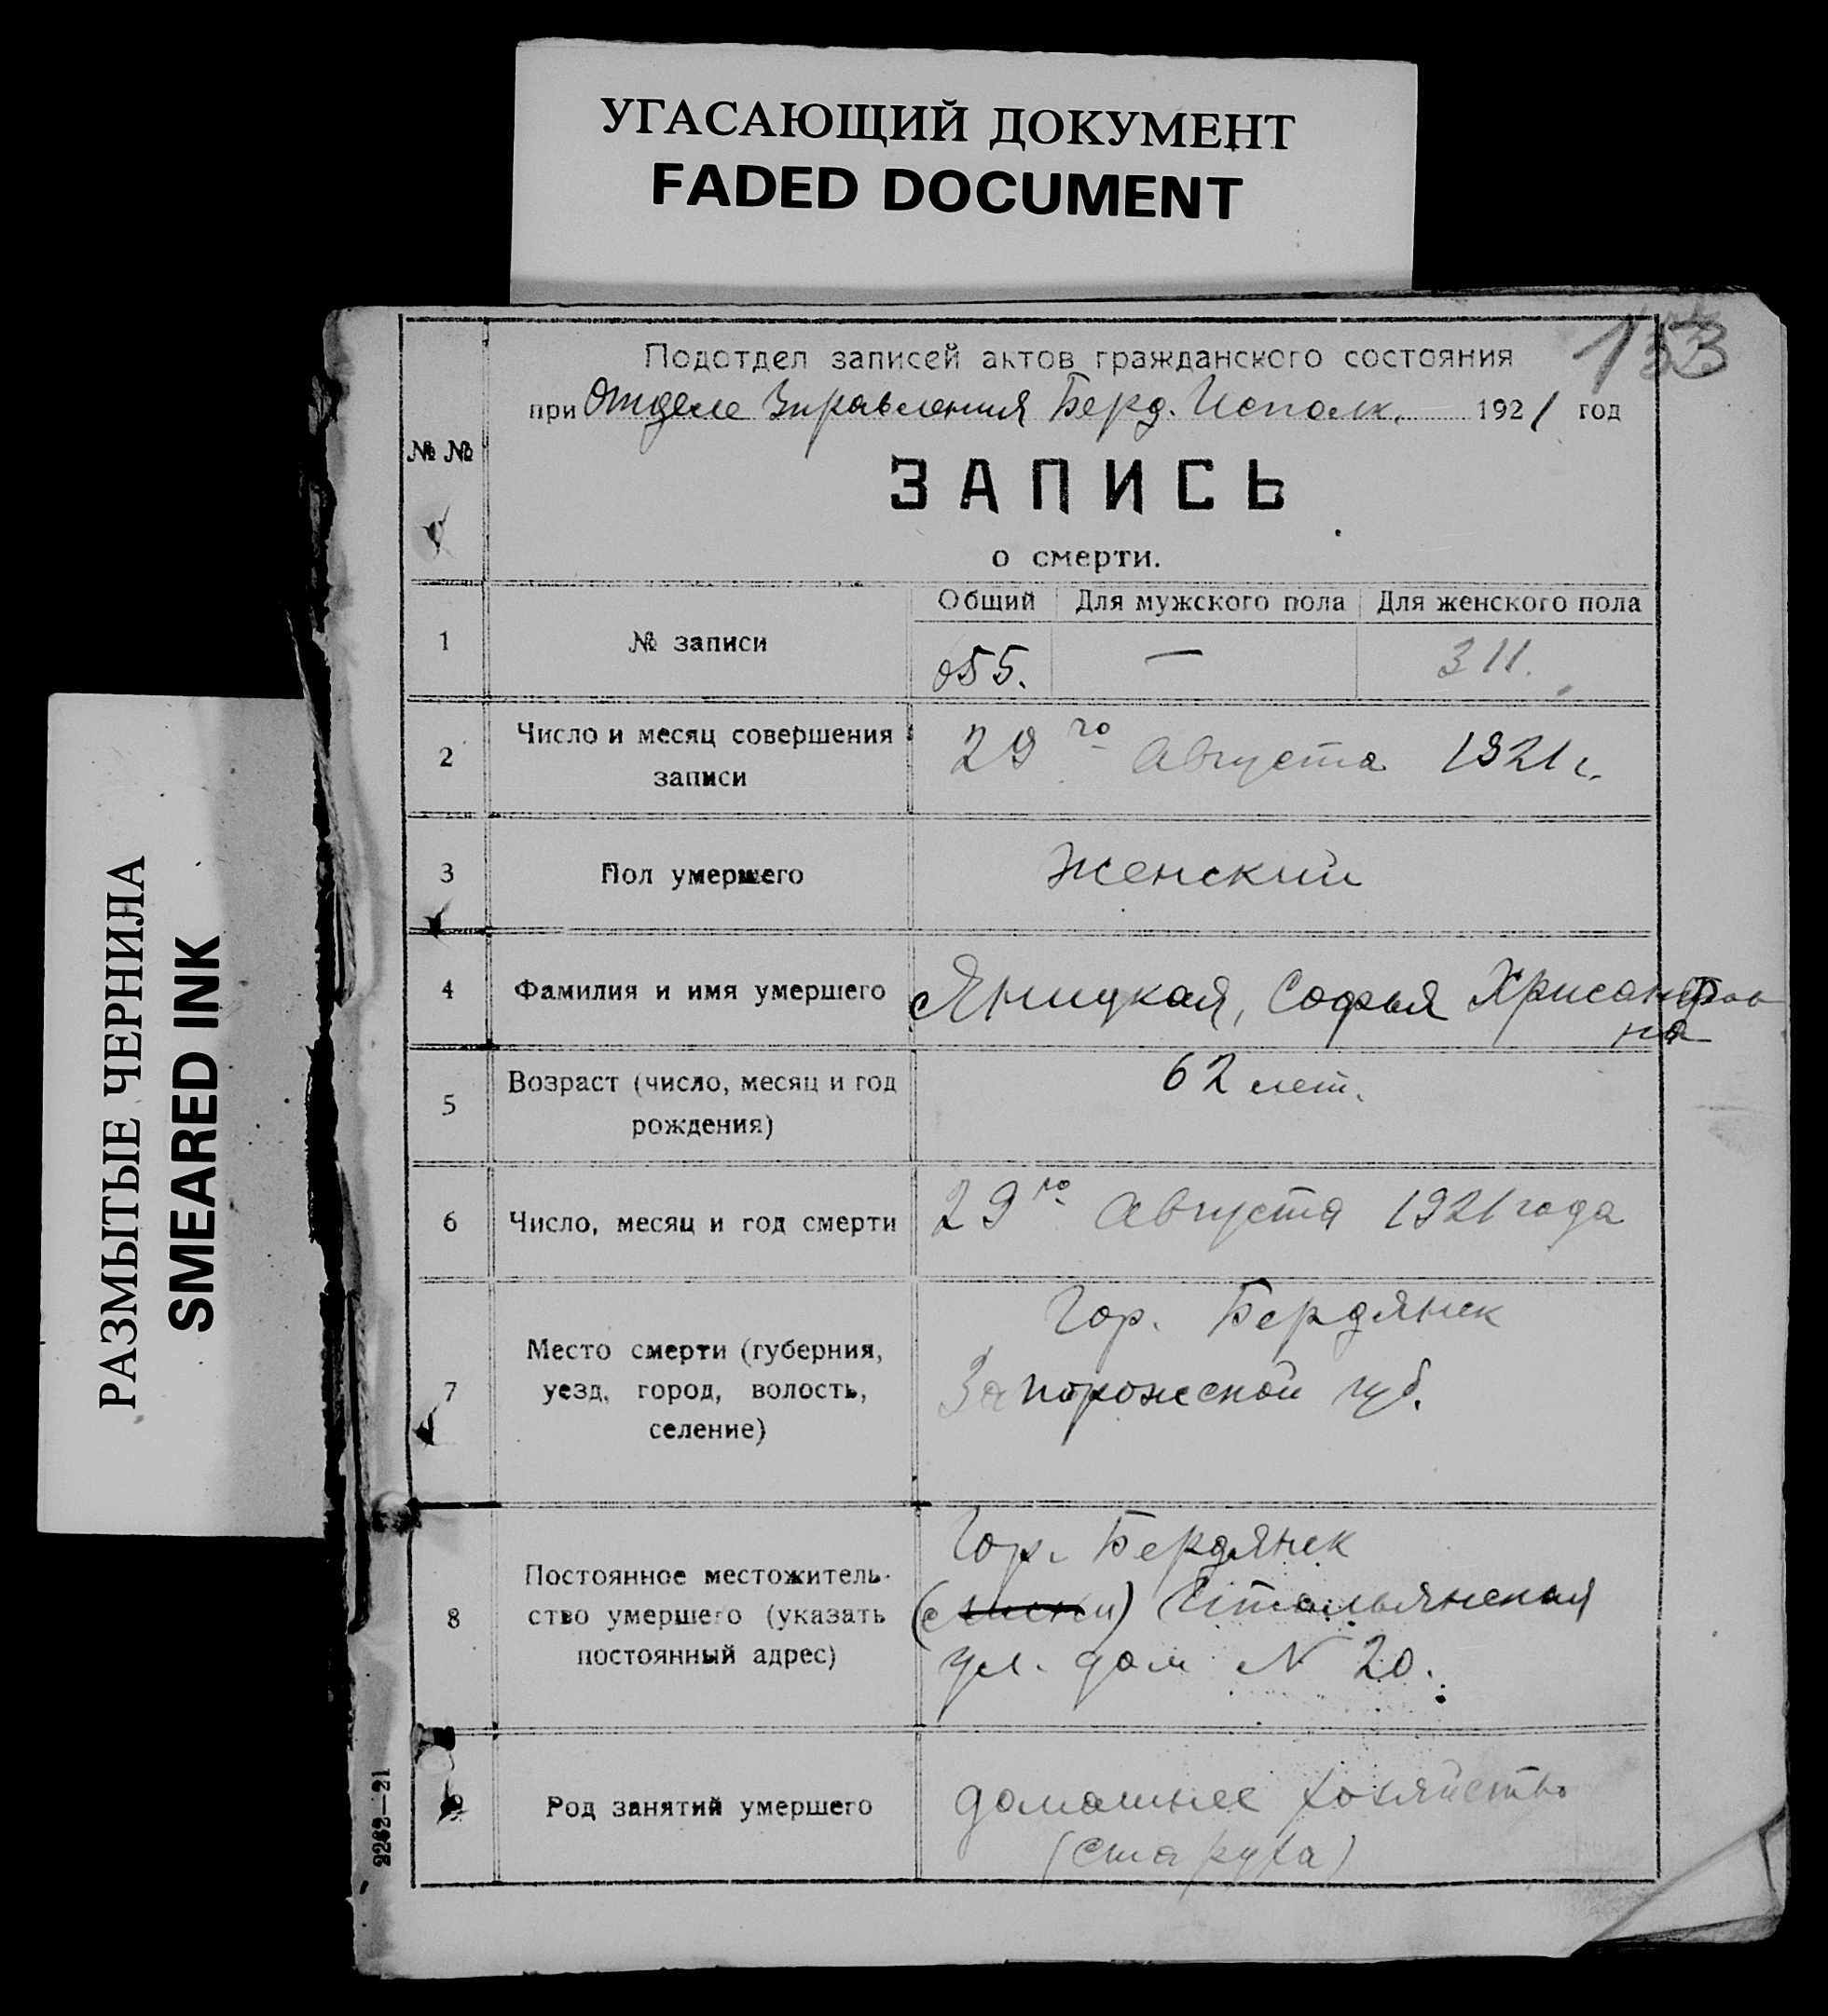 УГАСАЮЩИЙ ДОКУМЕНТ
FADED DOCUMENT
РАЗМЫТЫЕ ЧЕРНИЛА
SMEARED INK
153
Подотдел записей актов гражданского состояния
при Отделе Управления Берд. Исполк. 1921 год
№ №
ЗАПИСЬ
о смерти.
Общий Для мужского пола Для женского пола
1 № записи 655. — 311.
2 Число и месяц совершения записи 29го Августа 1921 г.
3 Пол умершего Женский
4 Фамилия и имя умершего Яницкая, Софья Хрисанфов
на
5 Возраст (число, месяц и год рождения) 62 лет.
6 Число, месяц и год смерти 29го Августа 1921 года
7 Место смерти (губерния, уезд, город, волость, селение)
Гор. Бердянск
Запорожской губ.
8 Постоянное местожитель-
ство умершего (указать
постоянный адрес)
Гор. Бердянск
Итальянская
ул. дом N 20.
9 Род занятий умершего домашнее хозяйство
(старуха)
2262—21